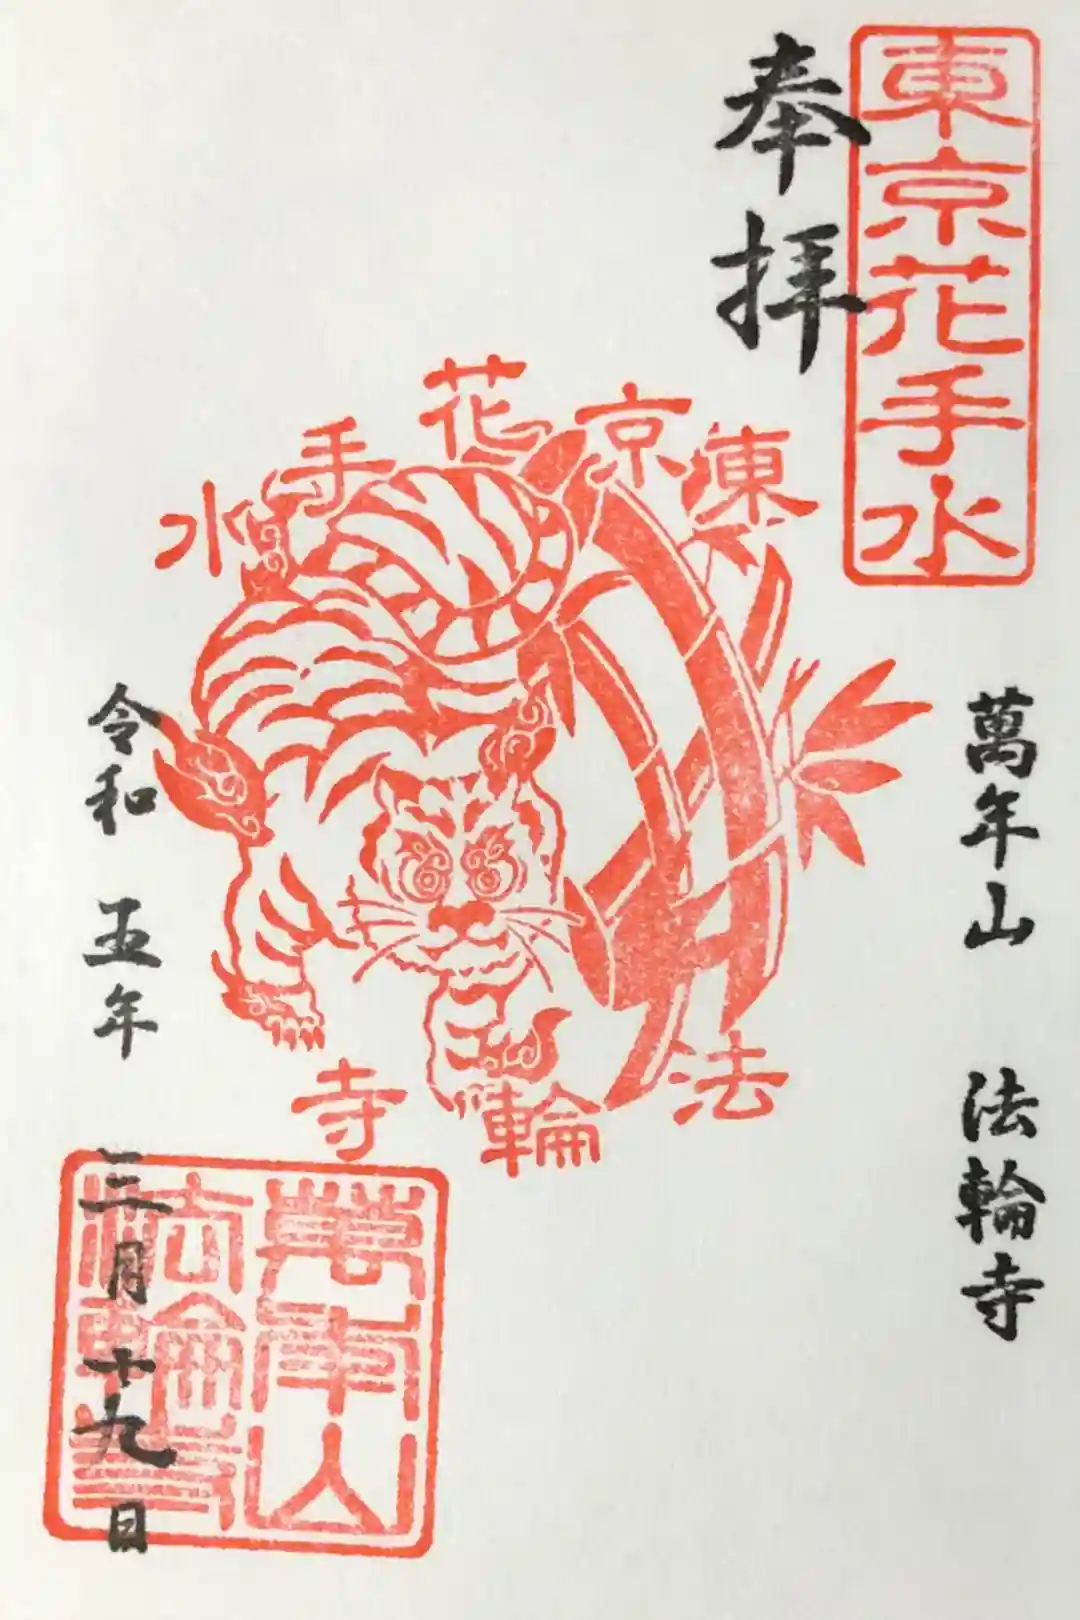 東京花手水
奉拝
萬年山 法輪寺
東京花手水
法輪寺
令和 五年 三月十九日
萬年山
法輪寺